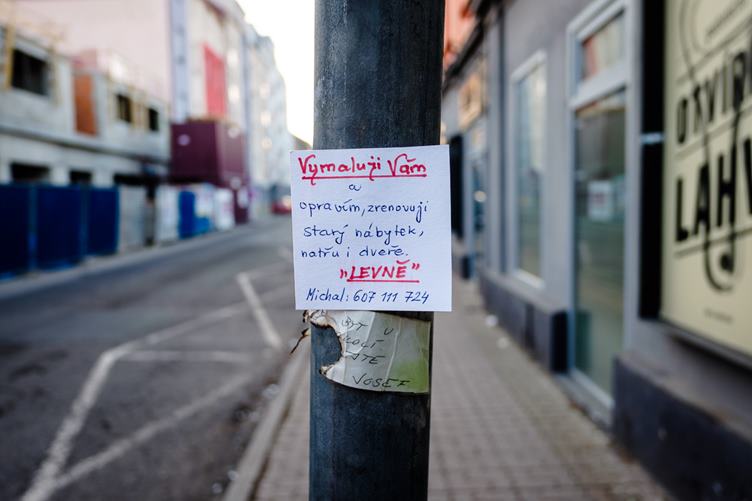 Vymaluji Vám
a
opravím, zrenovuji
starý nábytek,
natřu i dveře.
„LEVNĚ"
Michal: 607 111 724
U
VOSEF
OTVÍR
LAHV